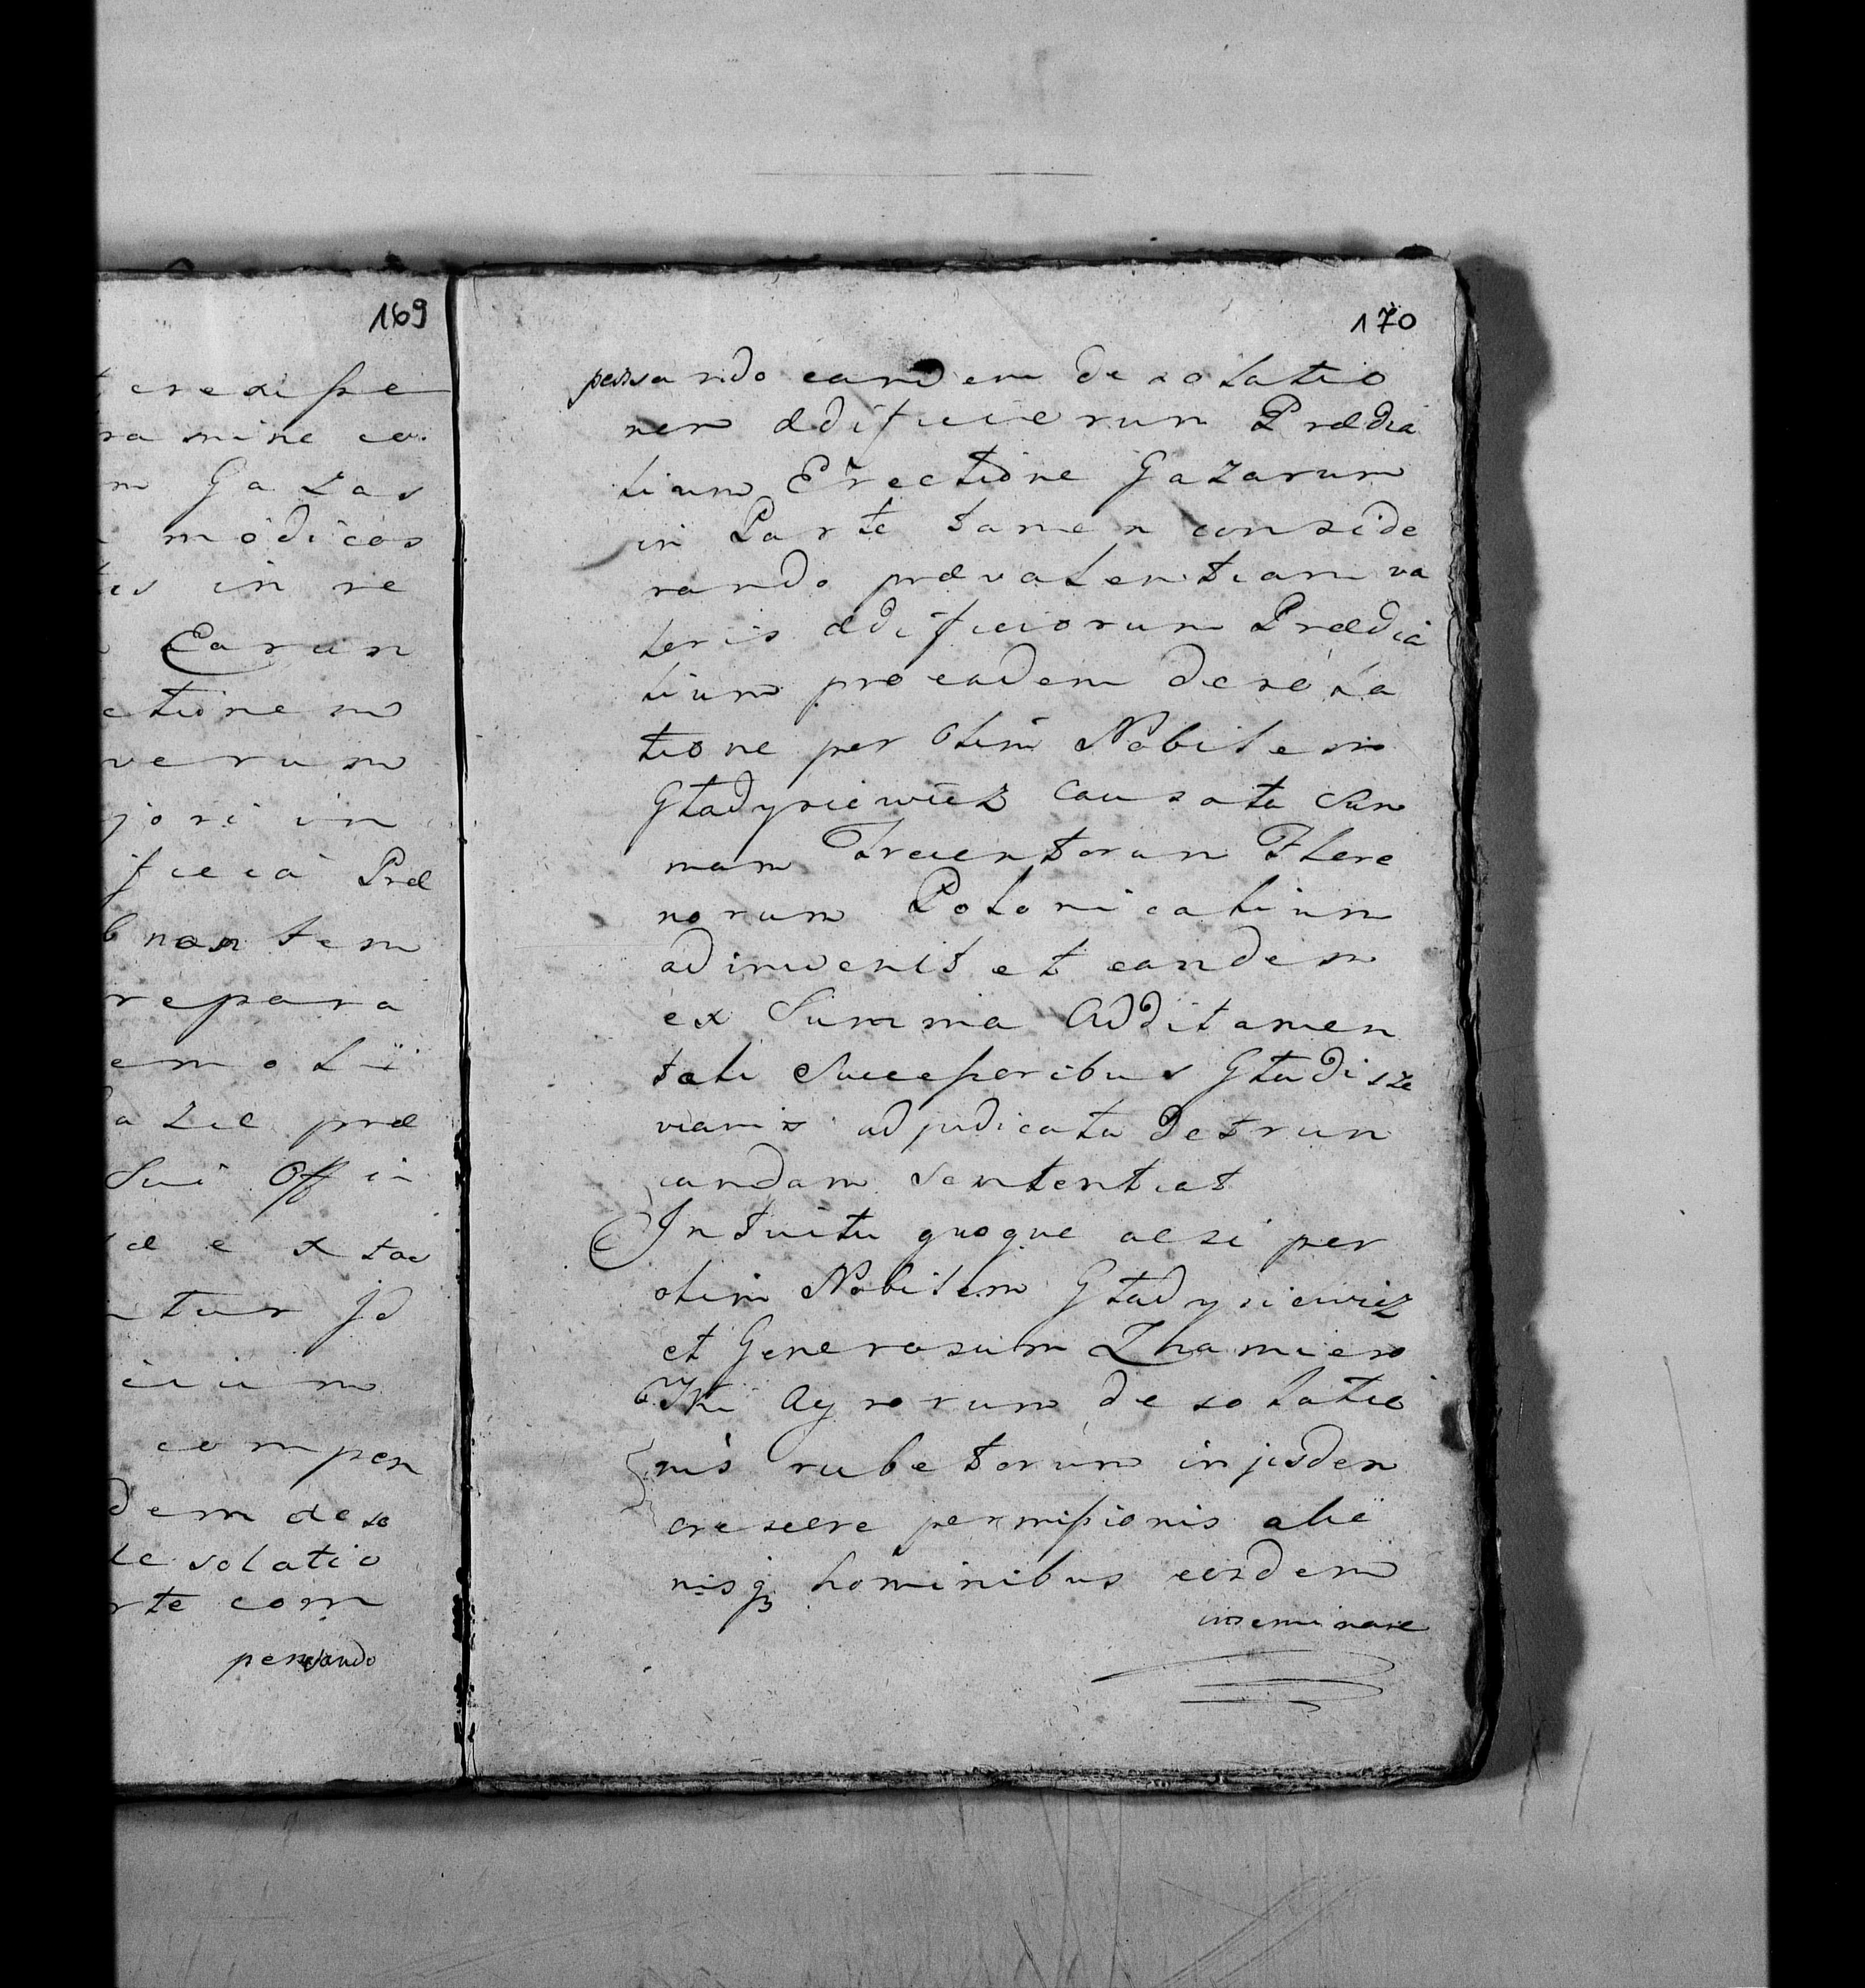 169
crexisse
ramine co
m Gazas
modicos
in re
Earun
ctionem
verum
jori in
ficia Præ
nantem
repara
emoli
præ
Sui Offi
extac
ntur Jd
icium
compen
dem deso
desolatio
rte com
pensando
170
pensando eandem desolatio
nem ædificiorum Prædia
lium Erectione Gazarum
in Parte tamen conside
rando prævalentiam va
loris ædificiorum Prædia
lium pro eadem desola
tione per olim Nobilem
Gładysiewicz causata Sum
mam Trecentorum Flore
norum Polonicalium
adinvenit et eandem
ex Summa Additamen
tali Successoribus Gładisze
vianis adjudicata detrun
candam sententiat
Intuitu quoque acsi per
olim Nobilem Gładysiewicz
et Generosum Znamiero
wski Agrorum desolatio
nis rubetorum in jisdem
crescere permissionis alie
nisq hominibus eosdem
inseminare